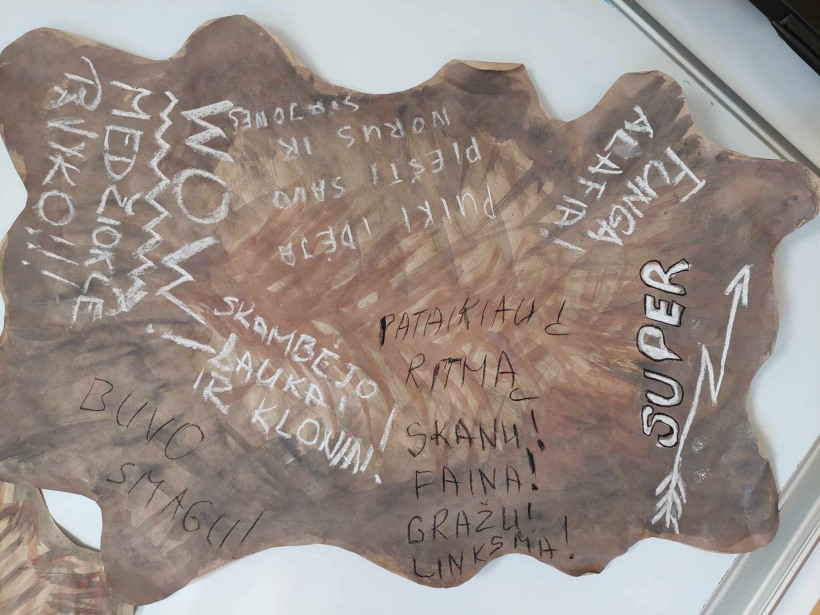 MEDŽIOKLĖ
WOW!
PUIKI IDĖJA
PIEŠTI SAVO
NORUS IR
SVAJONES
FUNGA
ALAFIA!
SUPER
SKAMBĖJO
LAUKAI
IR KLONIAI!
PATAIKIAU Į
RITMĄ
SKANU!
FAINA!
GRAŽU!
LINKSMA!
BUVO
SMAGU!